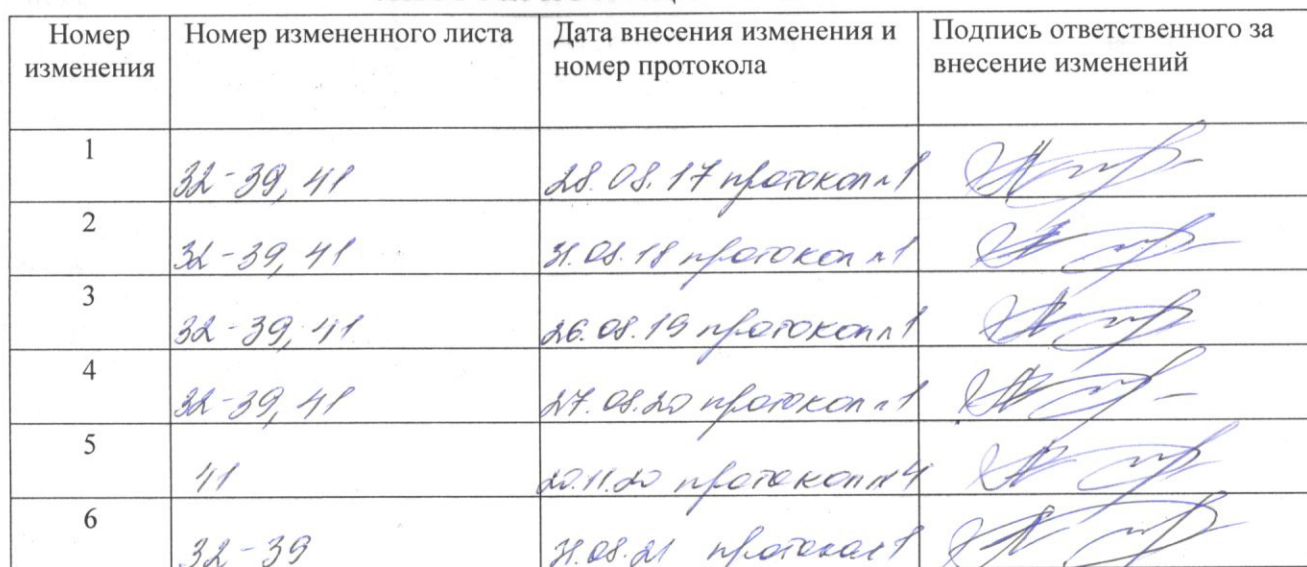 Номер изменения
Номер измененного листа
Дата внесения изменения и номер протокола
Подпись ответственного за внесение изменений
1
32-39, 41
28.08.17 протокол №1
2
32-39, 41
31.08.18 протокол №1
3
32-39, 41
26.08.19 протокол №1
4
32-39, 41
27.08.20 протокол №1
5
41
20.11.20 протокол №4
6
32-39
31.08.21 протокол 1